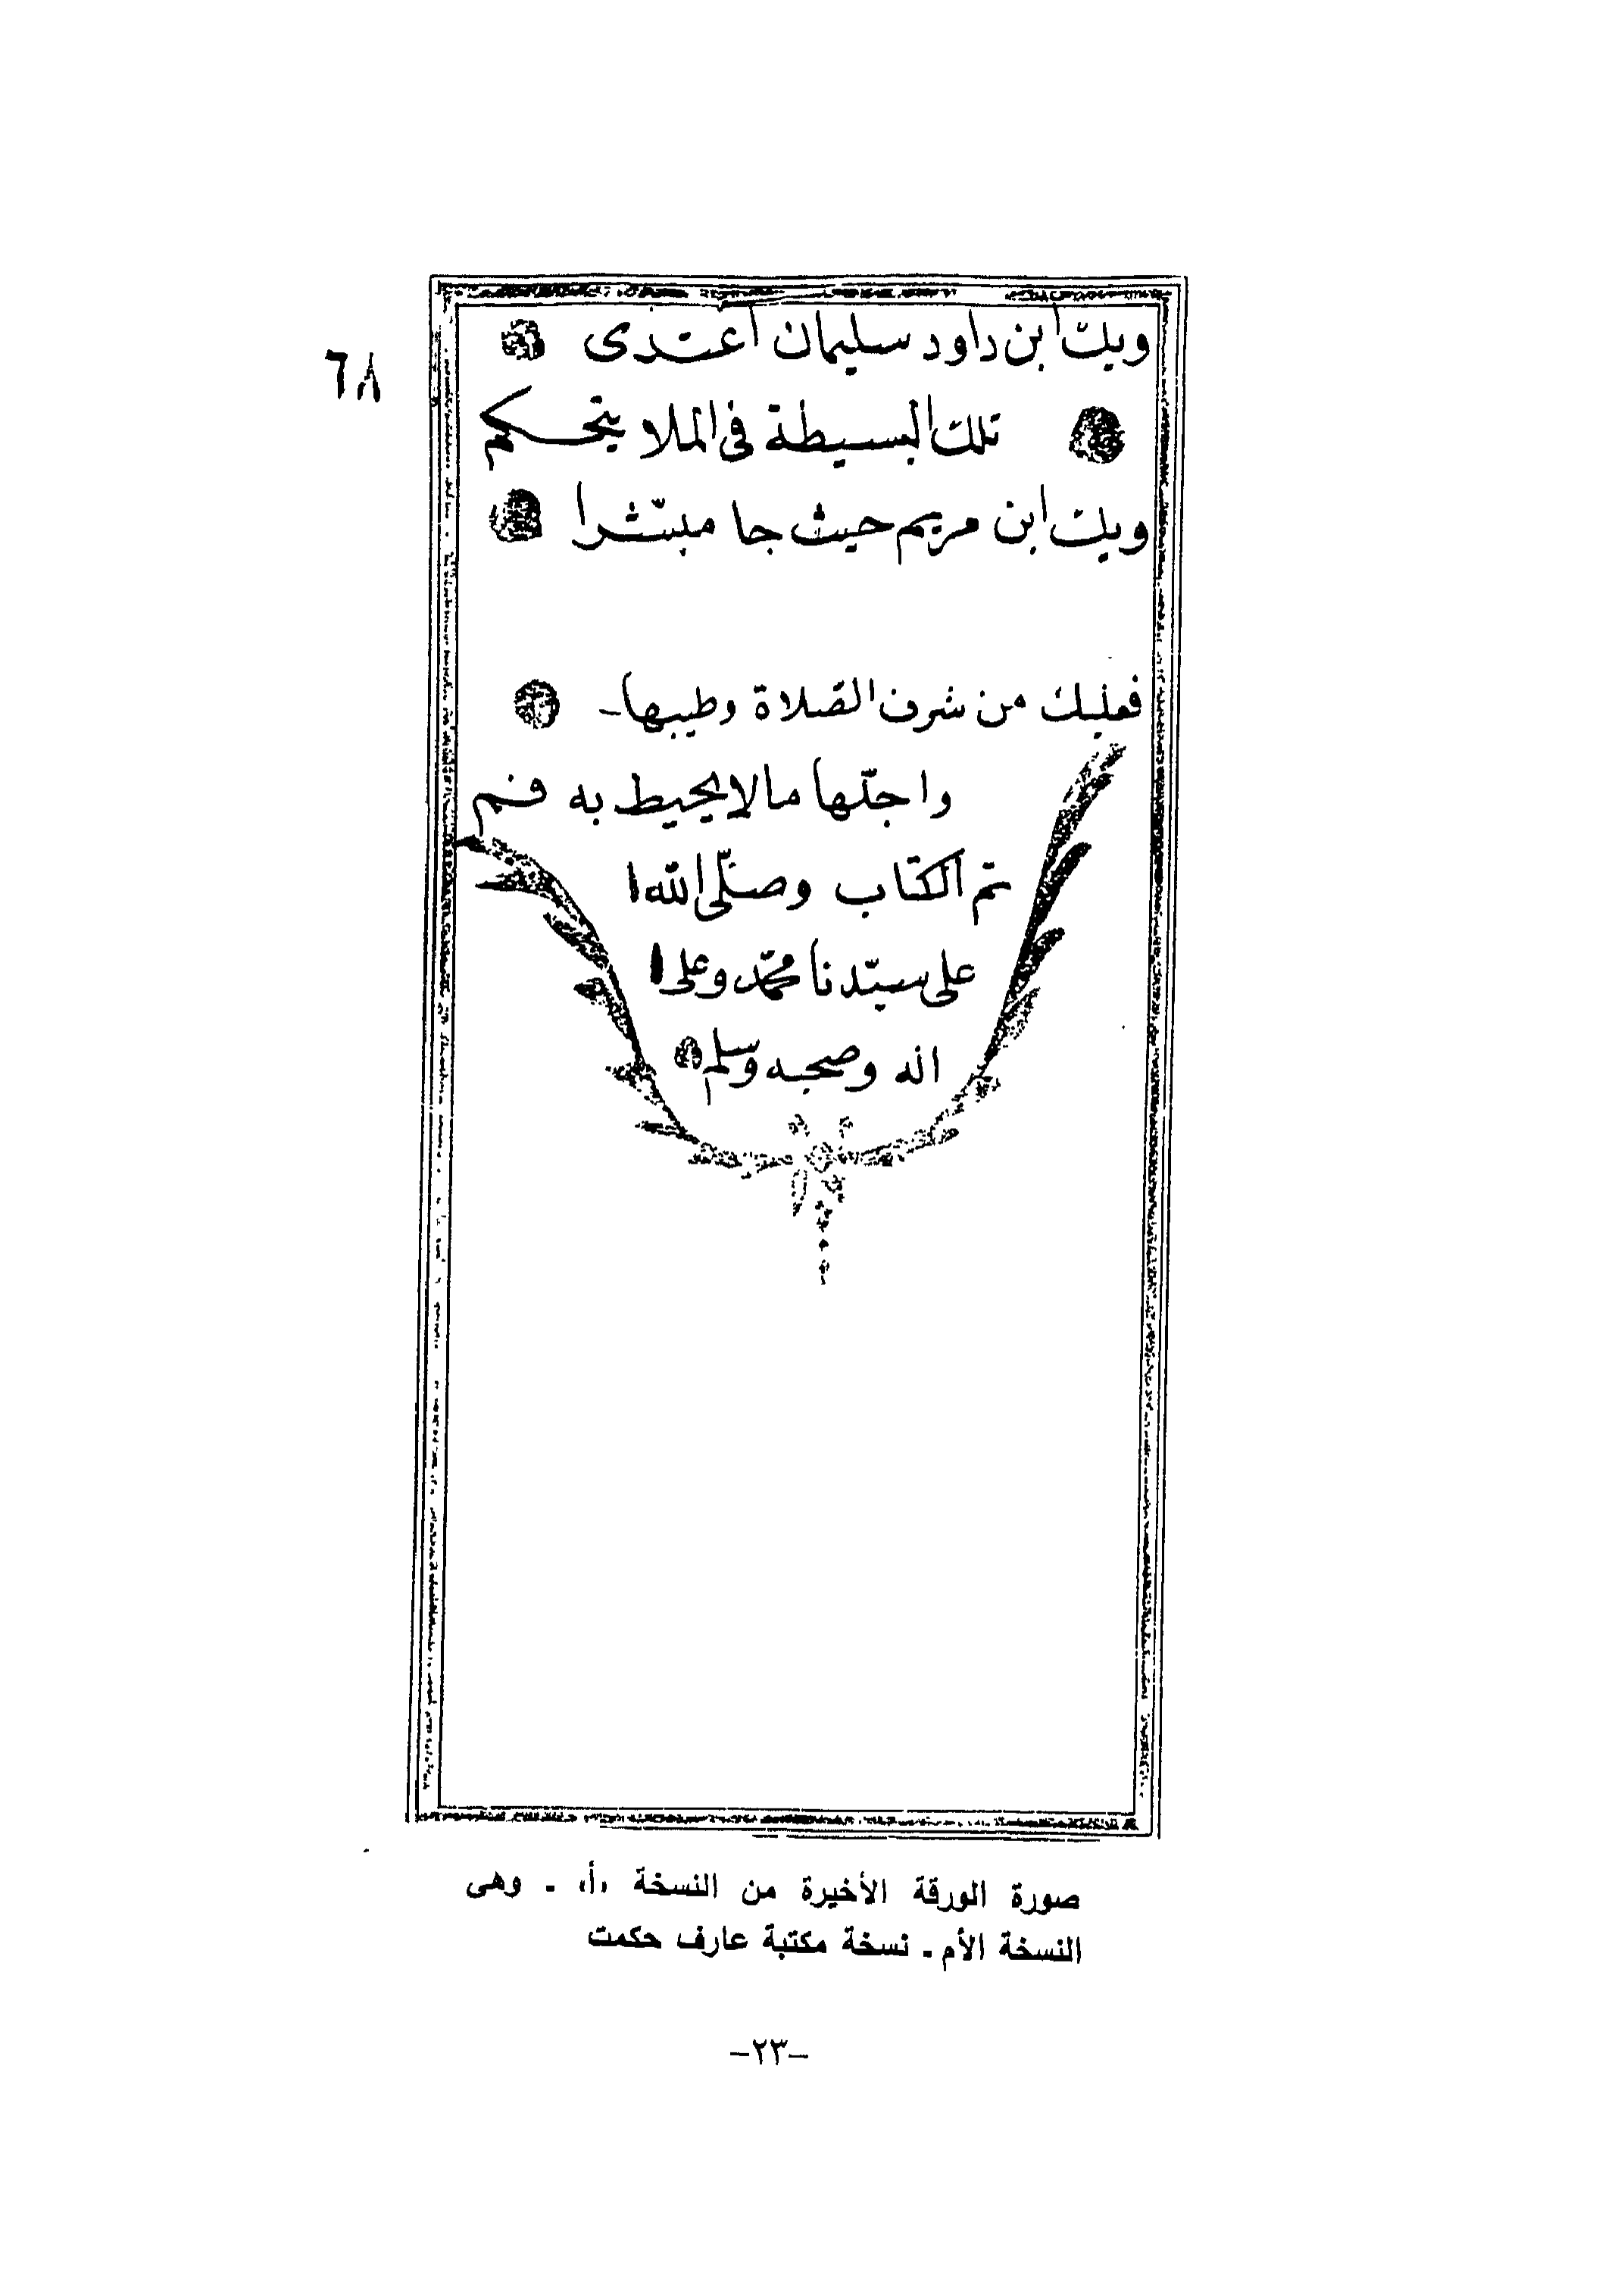 ٦٨
وبك ابن داود سليمان اعتدى
تلك البسيطة فى الملا يتحكم
وبك ابن مريم حيث جا مبشرا
فعليك من شرف الصّلاة وطيبها
واجلّها مالا يحيط به فم
تم الكتاب وصلّى الله
على سيّدنا محمّد وعلى
اله وصحبه وسلم
صورة الورقة الأخيرة من النسخة «أ» ـ وهى
النسخة الأم ـ نسخة مكتبة عارف حكمت
–٢٣–